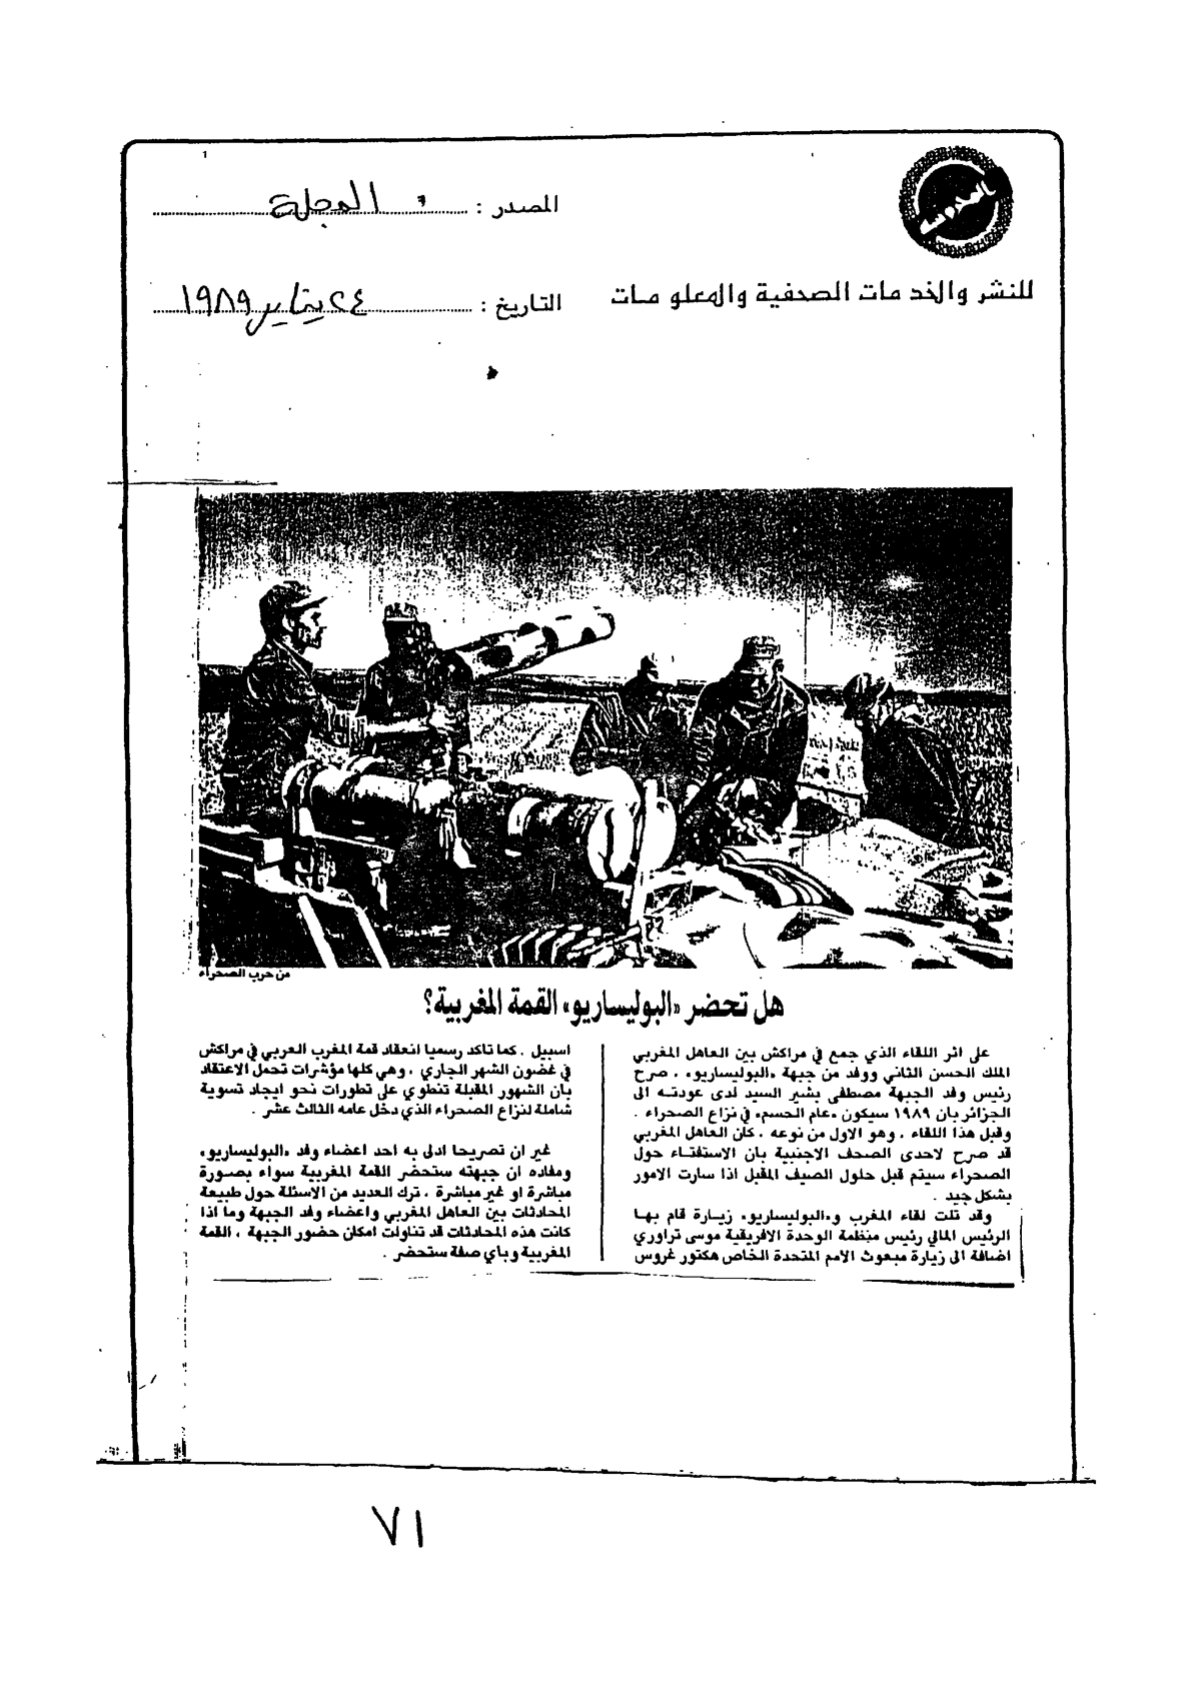 المصدر : المجلة
للنشر والخدمات الصحفية والمعلومات
التاريخ : ٢٤ يناير ١٩٨٩
من حرب الصحراء
هل تحضر «البوليساريو» القمة المغربية؟
على اثر اللقاء الذي جمع في مراكش بين العاهل المغربي
الملك الحسن الثاني ووفد من جبهة «البوليساريو» ، صرح
رئيس وفد الجبهة مصطفى بشير السيد لدى عودته الى
الجزائر بأن ١٩٨٩ سيكون «عام الحسم» في نزاع الصحراء .
وقبل هذا اللقاء ، وهو الاول من نوعه ، كان العاهل المغربي
قد صرح لاحدى الصحف الاجنبية بان الاستفتاء حول
الصحراء سيتم قبل حلول الصيف المقبل اذا سارت الامور
بشكل جيد .
وقد تلت لقاء المغرب و«البوليساريو» زيارة قام بها
الرئيس المالي رئيس منظمة الوحدة الافريقية موسى تراوري
اضافة الى زيارة مبعوث الامم المتحدة الخاص هكتور غروس
اسبيل . كما تاكد رسميا انعقاد قمة المغرب العربي في مراكش
في غضون الشهر الجاري ، وهي كلها مؤشرات تحمل الاعتقاد
بأن الشهور المقبلة تنطوي على تطورات نحو ايجاد تسوية
شاملة لنزاع الصحراء الذي دخل عامه الثالث عشر .
غير ان تصريحا ادلى به احد اعضاء وفد «البوليساريو»
ومفاده ان جبهته ستحضر القمة المغربية سواء بصورة
مباشرة او غير مباشرة ، ترك العديد من الاسئلة حول طبيعة
المحادثات بين العاهل المغربي واعضاء وفد الجبهة وما اذا
كانت هذه المحادثات قد تناولت امكان حضور الجبهة ، القمة
المغربية وباي صفة ستحضر .
٧١